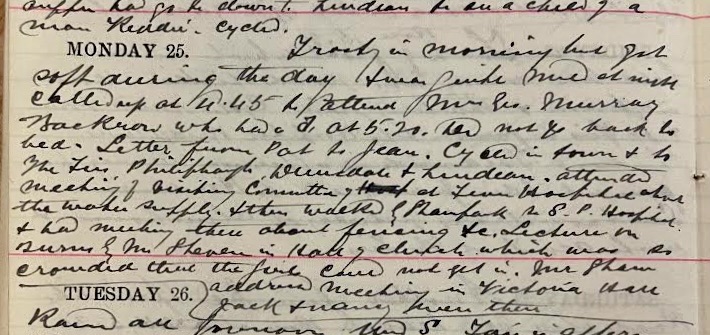 supper had to go down to Lindean to see a child of a
man Keddie. Cycled.
MONDAY 25. Frosty in morning but got
soft during the day & was quite mild at night
Called up at 4.45 to attend Mrs Geo. Murray
Backrow who had a F. at 5.20. Did not go back to
bed. Letter from Pat to Jean. Cycled in town & to
The Firs, Philiphaugh, Dunsdale & Lindean. Attended
meeting of Visiting Committee of at Fever Hospital about
the water supply. & then walked to S. P. Hospital
& had meeting there about fencing &c. Lecture on
Burns by Mr Steven in Hall of church which was so
crowded that the girls could not get in. Mr Shaw
TUESDAY 26. address meeting in Victoria Hall
Jack & were there
Rain all forenoon